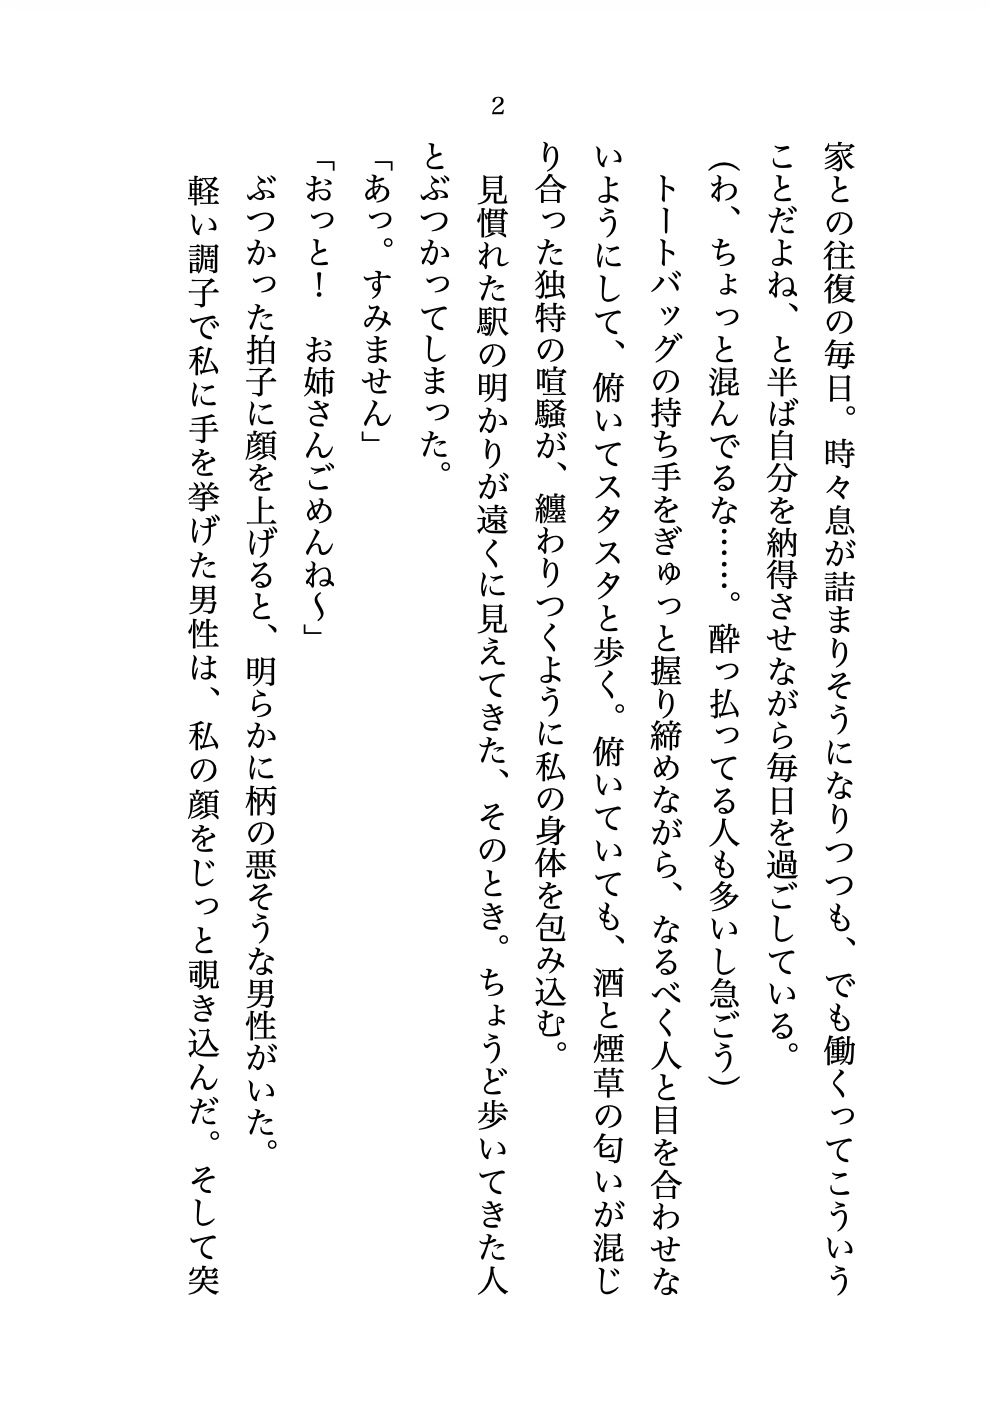 2
家との往復の毎日。時々息が詰まりそうになりつつも、でも働くってこういう
ことだよね、と半ば自分を納得させながら毎日を過ごしている。
(わ、ちょっと混んでるな……。酔っ払ってる人も多いし急ごう)
トートバッグの持ち手をぎゅっと握り締めながら、なるべく人と目を合わせな
いようにして、俯いてスタスタと歩く。俯いていても、酒と煙草の匂いが混じ
り合った独特の喧騒が、纏わりつくように私の身体を包み込む。
見慣れた駅の明かりが遠くに見えてきた、そのとき。ちょうど歩いてきた人
とぶつかってしまった。
「あっ。すみません」
「おっと！　お姉さんごめんね～」
ぶつかった拍子に顔を上げると、明らかに柄の悪そうな男性がいた。
軽い調子で私に手を挙げた男性は、私の顔をじっと覗き込んだ。そして突